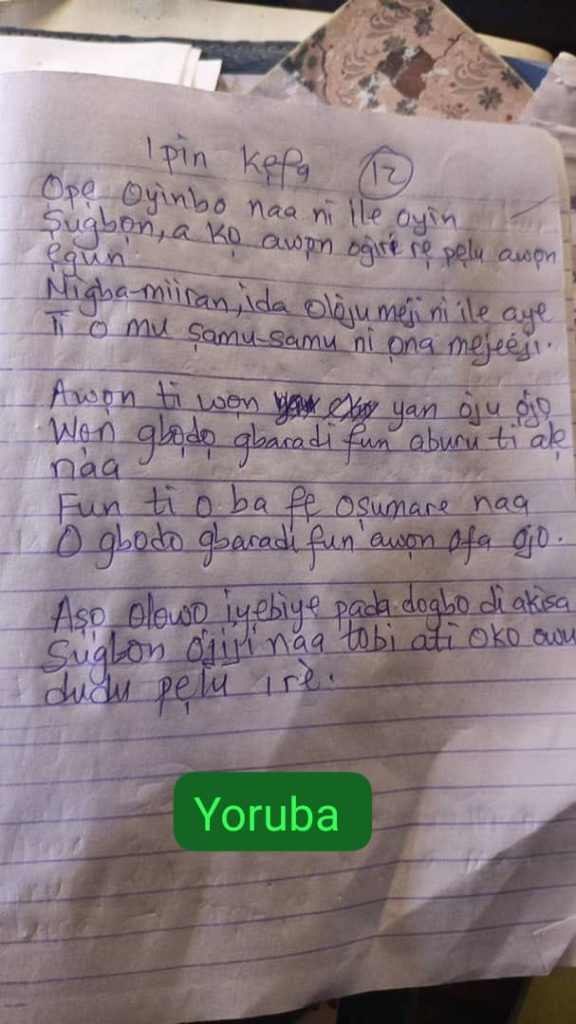 Ipin Kẹfa 12
Ọpẹ Oyinbo naa ni ile oyin
Ṣugbọn, a kọ awọn ogiri rẹ pẹlu awọn
ẹgun
Nigba-miiran, ida olójumeji ni ile aye
Ti o mu ṣamu-ṣamu ni ọna mejeeji.
Awọn ti wọn yan ọju ọjọ
Wọn gbọdọ gbaradi fun aburu ti alẹ
naa
Fun ti o ba fẹ oṣumare naa
O gbodo gbaradi fun awọn ọfa ọjọ.
Aṣọ olowo iyebiye pada dogbo di akisa
Ṣugbọn ojiji naa tobi ati oko awu
dudu pẹlu ire.
Yoruba